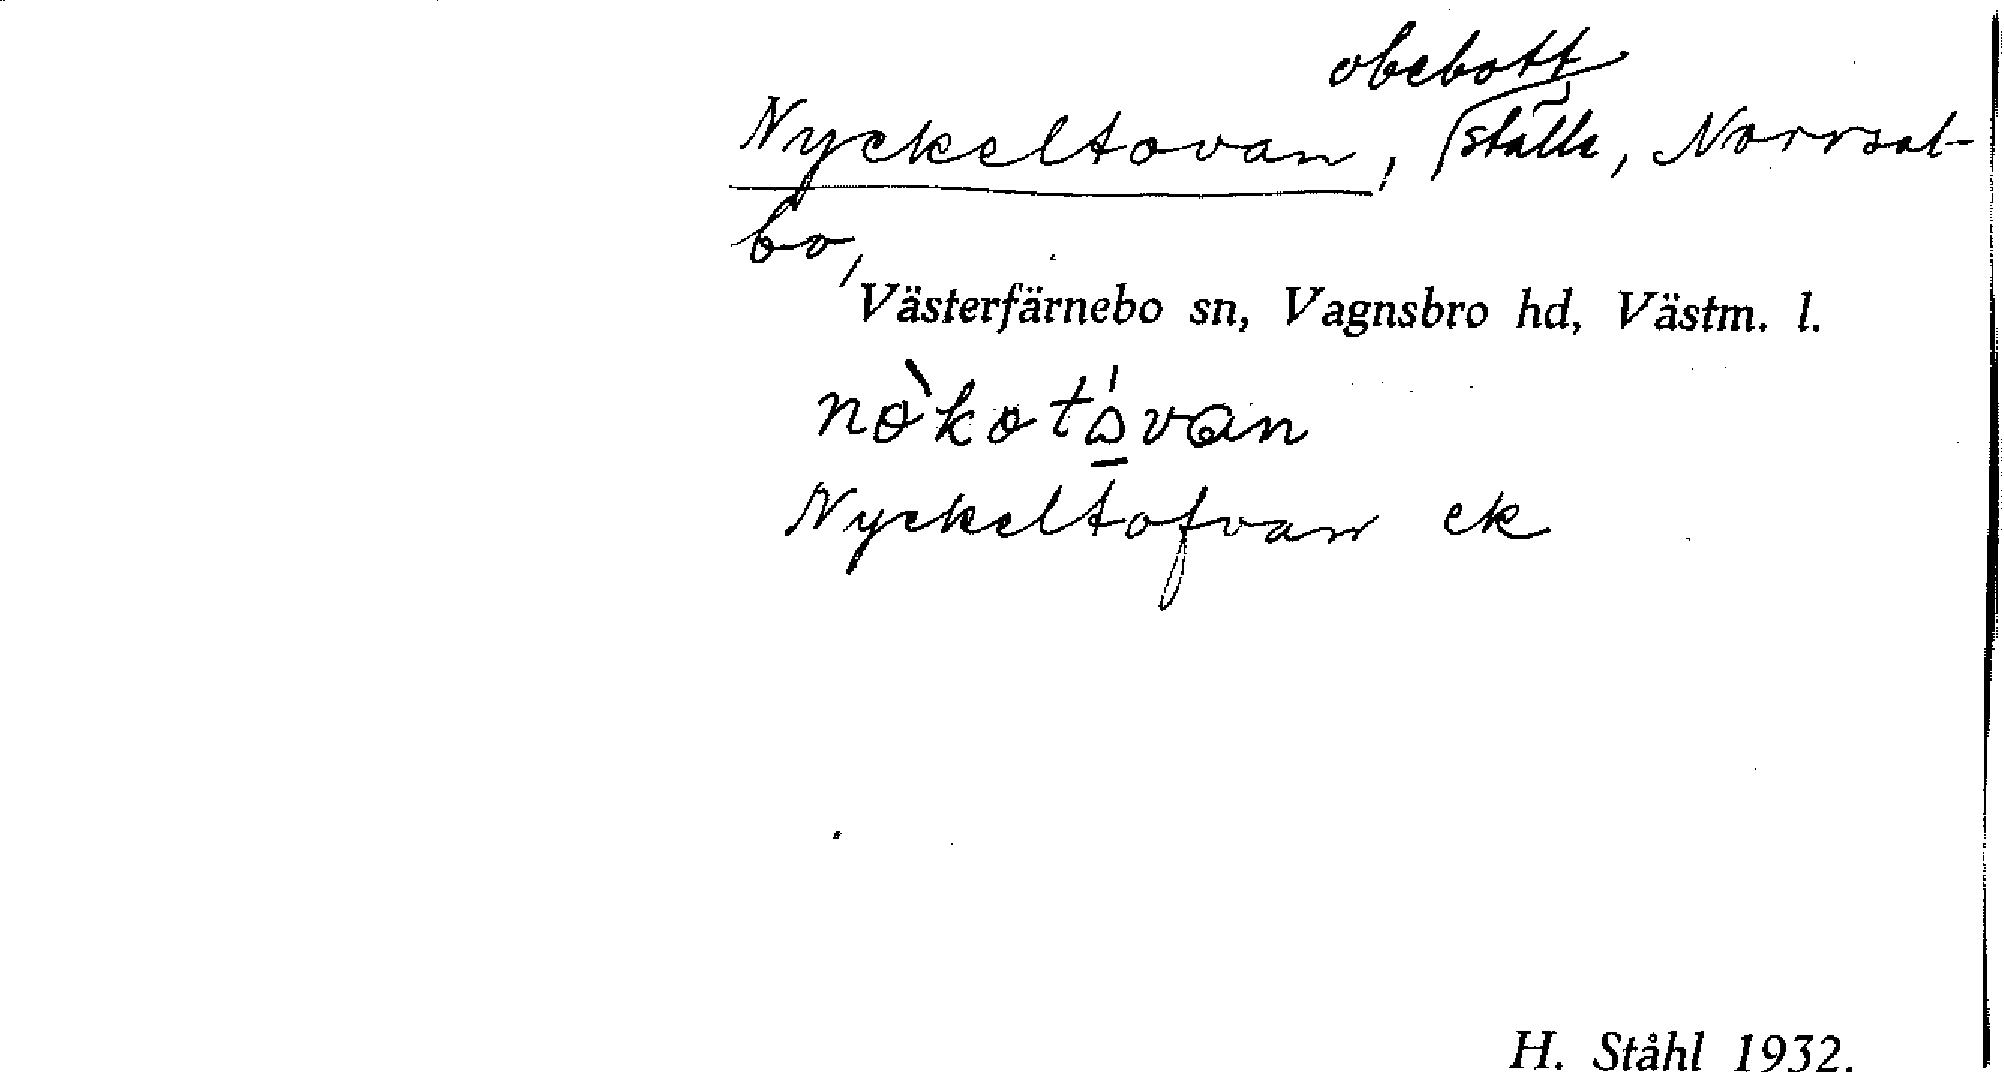 obebott
Nyckeltovan, ställe, Norrsal-
bo,
Västerfärnebo sn, Vagnsbro hd, Västm. l.
Nyckeltofvan ek
H. Ståhl 1932.